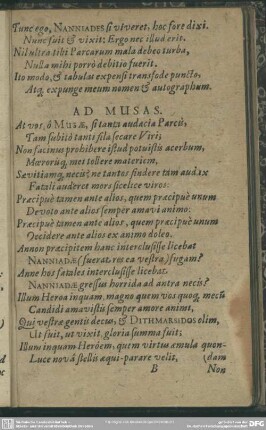 Tunc ego, NANNIADES si viveret, hoc fore dixi.
Nunc fuit & vixit; Ergo nec illud erit.
Nil ultra tibi Parcarum mala debeo turba,
Nulla mihi porrò debitio fuerit.
Ito modo, & tabulæ expensi transfode puncto,
Atq, expunge meum nomen & autographum.
AD MUSAS.
At vos, ô MUSÆ, si tanta audacia Parcis,
Tam subitò tanti fila secare Viri;
Non facinus prohibere istud potuistis acerbum,
Mærorúq, met tollere materiem,
Sævitiamq, necis? ne tantos findere tàm audax
Fatali auderet mors scelice viros.
Præcipuè tamen ante alios, quem præcipuè unum
Devoto ante alios semper amavi animo:
Præcipuè tamen ante alios, quem præcipuè unum
Occidere ante alios ex animo doleo.
Annon præcipitem hanc interclusisse licebat
NANNIADÆ (fuerat res ea vestra) fugam?
Anne hos fatales interclusisse licebat,
NANNIADÆ gressus horrida ad antra necis?
Illum Heroa inquam, magno quem vos quoq, mecũ
Candidi amavistis semper amore animi,
Qui vestræ gentis decus, & DITHMARSIDOS olim,
Ut fuit, ut vixit, gloria summa fuit;
Illum inquam Heröem, quem virtus æmula quon-
Luce novâ stellis æqui-parare velit, (dam
B Non